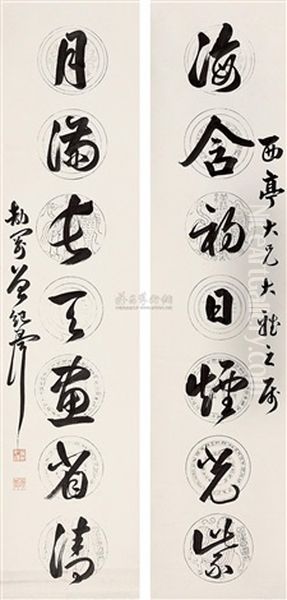 西亭大兄大雅之屬
海含初日煙光紫
月滿長天畫省清
劼剛曾紀澤